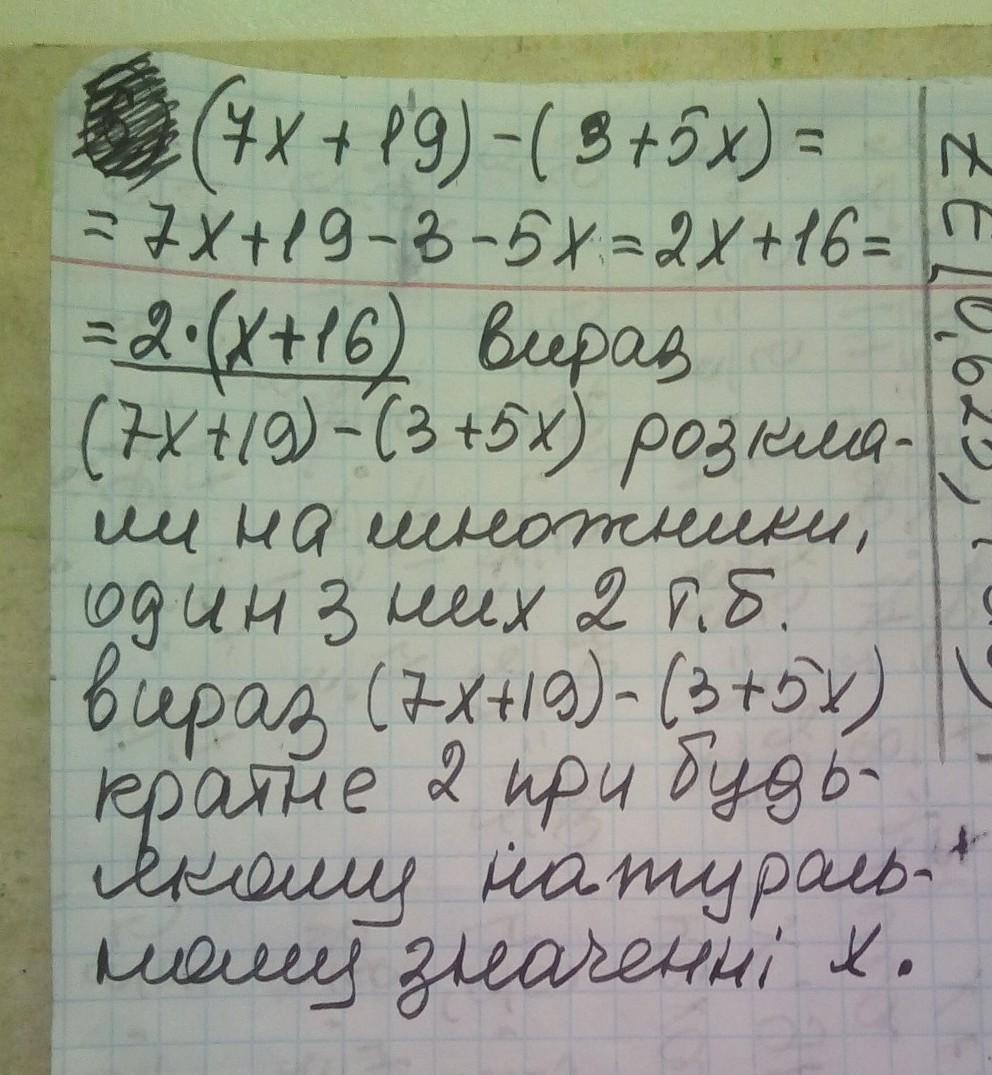 (7x + 19) - (3 + 5x) =
= 7x + 19 - 3 - 5x = 2x + 16 =
= 2·(x+16) вираз
(7x+19) - (3+5x) розкла-
ли на множники,
один з них 2 т.б.
вираз (7x+19) - (3+5x)
кратне 2 при будь-
якому натураль-
ному значенні x.